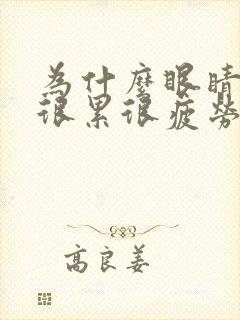 為什麼眼睛
很累很疲勞
高良姜